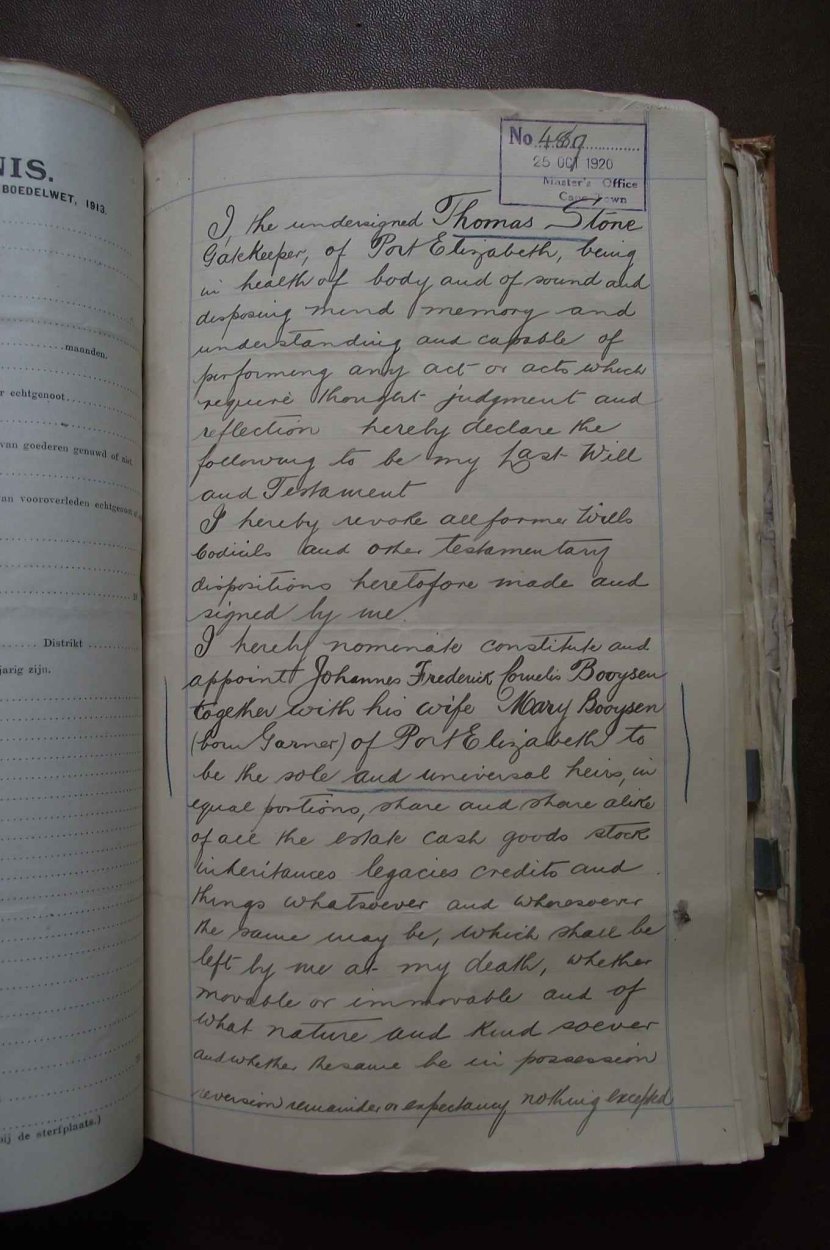 NIS.
BOEDELWET, 1913.
maanden.
r echtgenoot
van goederen genuwd of niet
van vooroverleden echtgenoot
Distrikt
jarig zijn.
bij de sterfplaats.)
No 489
25 OCT 1920
Master's Office
Cape Town
I, the undersigned Thomas Stone
Gatekeeper, of Port Elizabeth, being
in health of body and of sound and
disposing mind memory and
understanding and capable of
performing any act or acts which
require thought judgment and
reflection hereby declare the
following to be my Last Will
and Testament
I hereby revoke all former Wills
Codicils and other testamentary
dispositions heretofore made and
signed by me.
I hereby nominate constitute and
appoint Johannes Frederick Cornelis Booysen
together with his wife Mary Booysen
(born Garner) of Port Elizabeth to
be the sole and universal heirs, in
equal portions, share and share alike
of all the estate cash goods stock
inheritances legacies credits and
things whatsoever and wheresoever
the same may be, which shall be
left by me at my death, whether
movable or immovable and of
what nature and kind soever
and whether the same be in possession
reversion remainder or expectancy nothing excepted